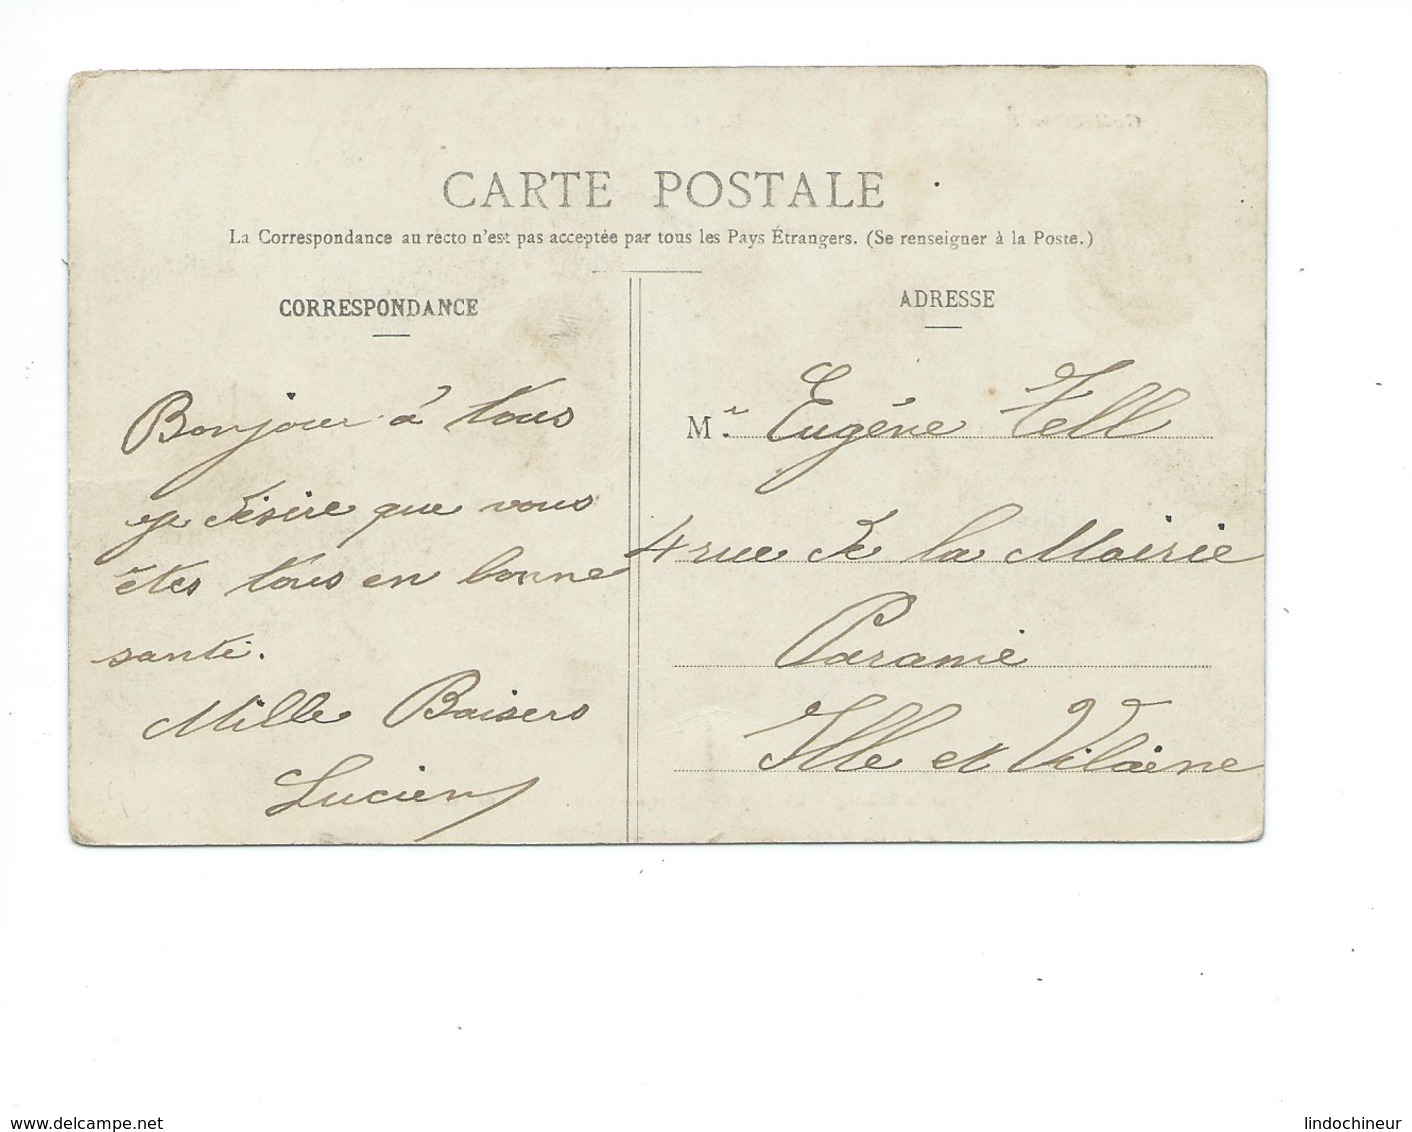 CARTE POSTALE
La Correspondance au recto n'est pas acceptée par tous les Pays Étrangers. (Se renseigner à la Poste.)
CORRESPONDANCE
Bonjour à tous
je désire que vous
êtes tous en bonne
santé.
Mille Baisers
Lucien
ADRESSE
M.r Eugéne Tell
4 rue de la Mairie
Paramé
Ille et Vilaine
www.delcampe.net
lindochineur